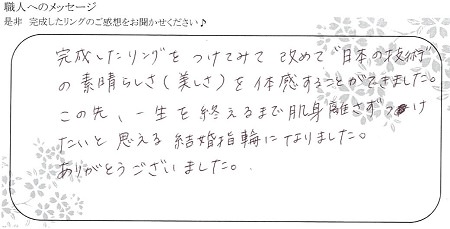 職人へのメッセージ
是非 完成したリングのご感想をお聞かせください♪
完成したリングをつけてみて 改めて"日本の技術"
の素晴らしさ(美しさ)を体感することができました。
この先、一生を終えるまで肌身離さずつけ
たいと思える結婚指輪になりました。
ありがとうございました。